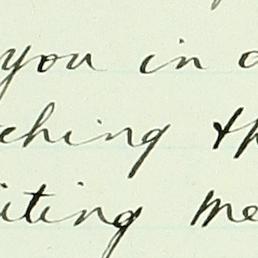 you in
ching
iting me